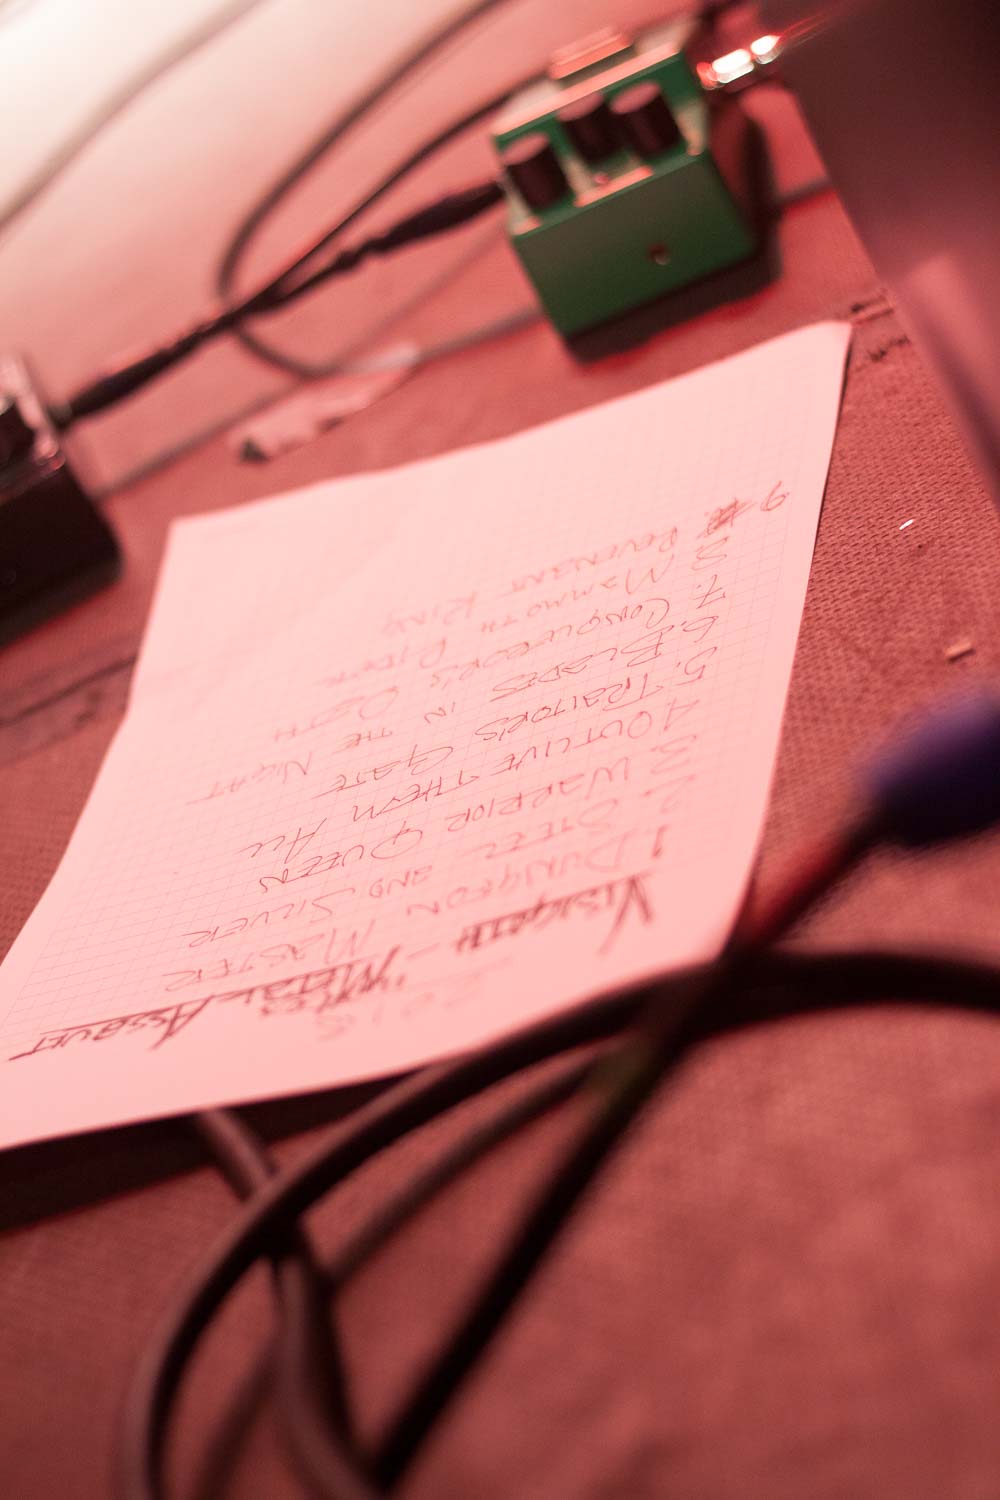 2018
VISIGOTH - METAL ASSAULT
1. DUNGEON MASTER
2. STEEL AND SILVER
3. WARRIOR QUEEN
4. OUTLIVE THEM ALL
5. TRAITOR'S GATE
6. BLADES IN THE NIGHT
7. CONQUEROR'S OATH
8. MAMMOTH RIDER
9. REVENANT KING